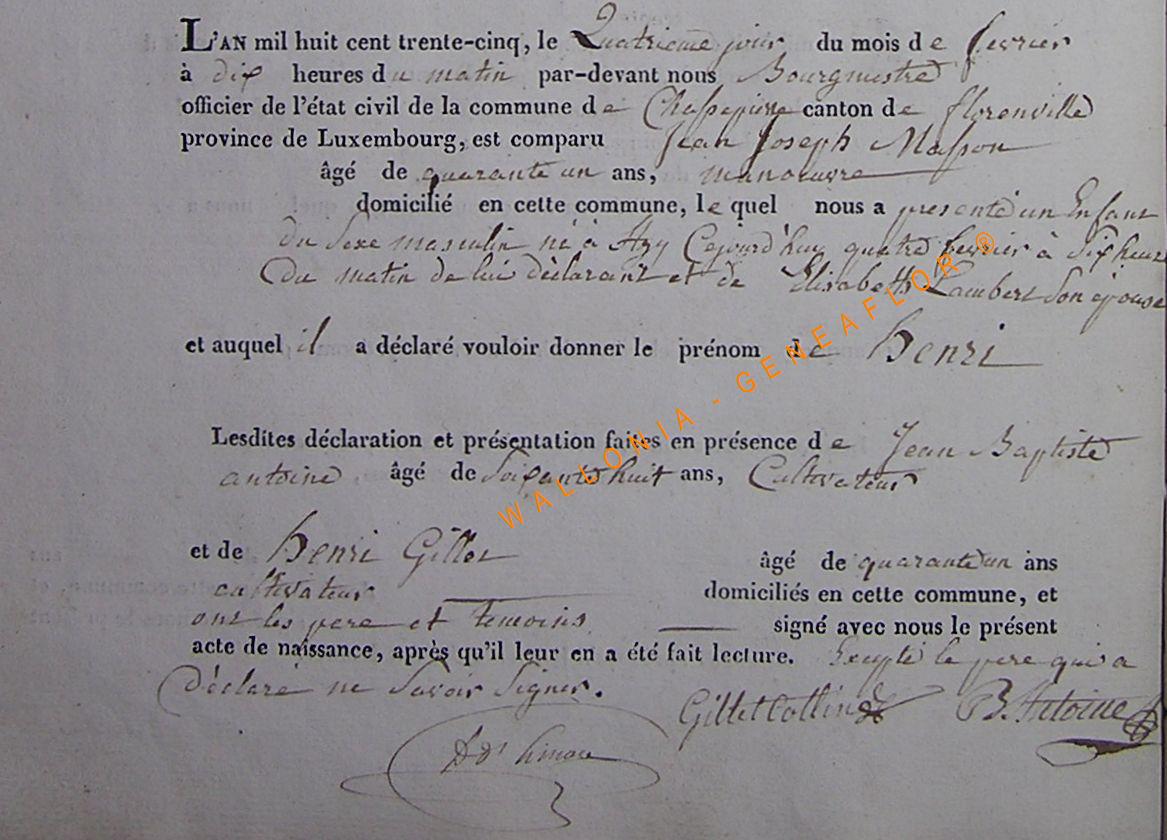 L'AN mil huit cent trente-cinq, le Quatrieme jour du mois de fevrier
à dix heures du matin par-devant nous Bourgmestre
officier de l'état civil de la commune de Chassepierre canton de florenville
province de Luxembourg, est comparu Jean Joseph Masson
âgé de quarante un ans, manoeuvre
domicilié en cette commune, le quel nous a presenté un Enfant
du Sexe masculin né à Azy Cejourd'huy quatre fevrier à dix heures
du matin de lui déclarant et de Elisabeth Lambert Son épouse
et auquel il a déclaré vouloir donner le prénom de henri
Lesdites déclaration et présentation faites en présence de Jean Baptiste
antoine âgé de Soixante huit ans, Cultivateur
et de henri Gillet âgé de quarante un ans
cultivateur domiciliés en cette commune, et
ont les pere et temoins signé avec nous le présent
acte de naissance, après qu'il leur en a été fait lecture. Excepté le pere qui a
Déclaré ne Savoir Signer.
Gillet Collin B. Antoine
WALLONIA - GENEAFLOR ®